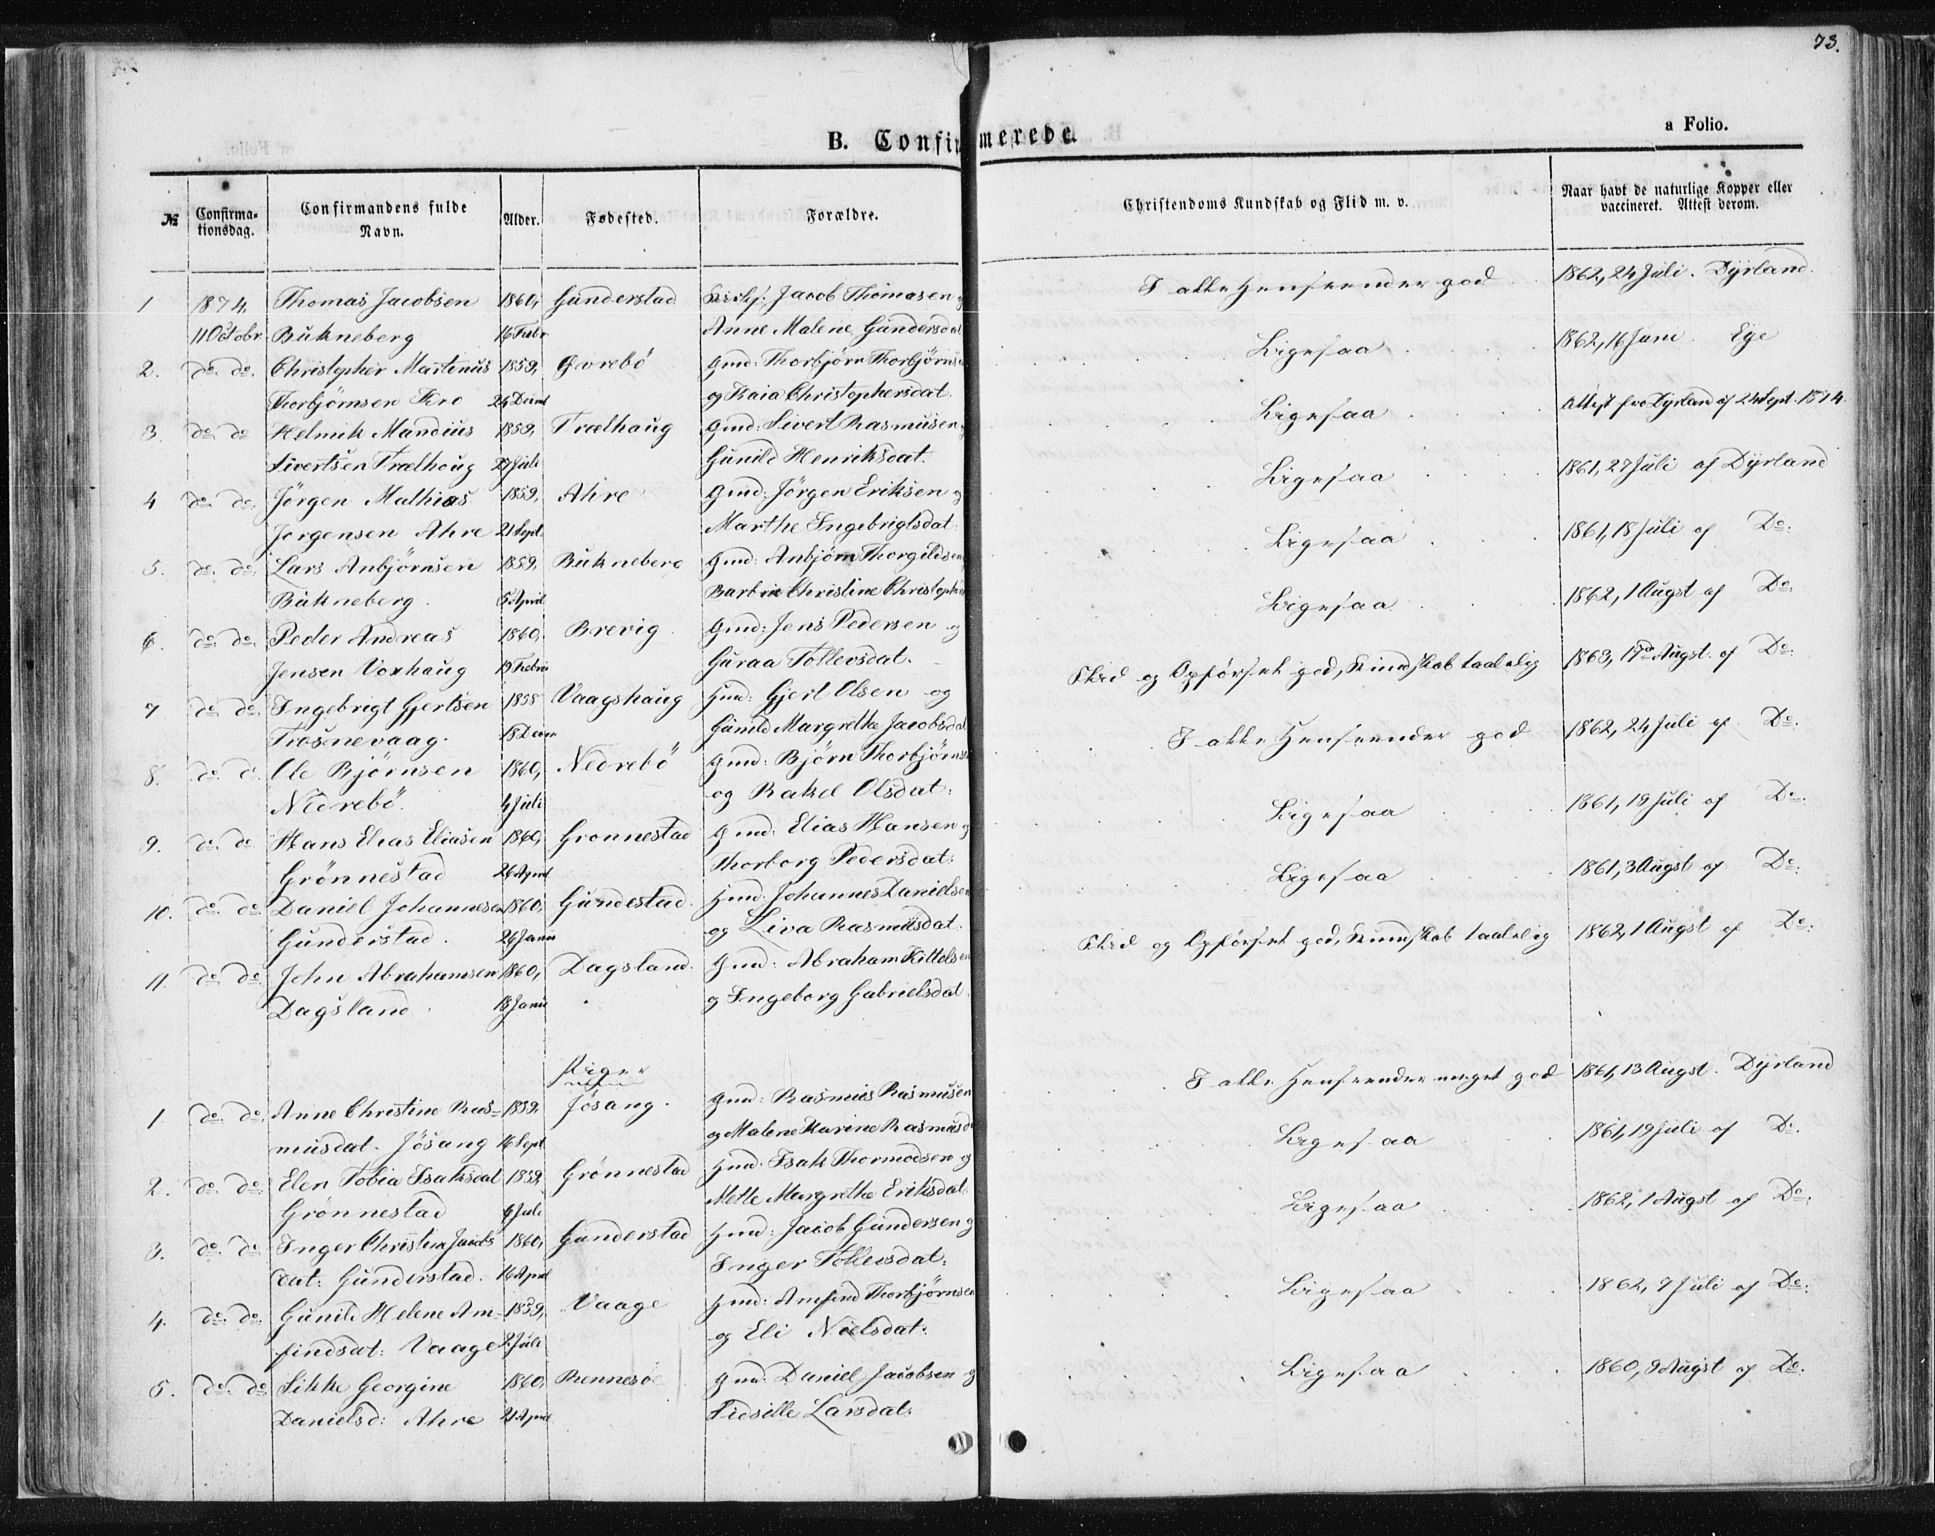 73.
B. Confirmerede.
a Folio.
№ Confirma- Confirmandens fulde Alder. Fødested. Forældre. Christendoms Kundskab og Flid m. v. Naar havt de naturlige Kopper eller
tionsdag. Navn. vaccineret. Attest derom.
1 1874, Thomas Jacobsen 1860, Gunderstad Jacob Thomasen og I alle Henseender god 1862, 24 Juli. Dyrland.
11 Octobr. Bukneberg 16 Febr Anne Malene Gundersdat
2. do. do. Christopher Martinus 1859, Gvrebö Gmd: Thorbjörn Thorbjörns Ligesaa 1862, 16 Juni Ege
Thorbjörnsen 24 Decmb og Christophersdat.
3. do. do Helmik Mandius 1859, Trælhaug Gmd: Sivert Rasmusen Ligesaa Attest fra Dyrland af 24 Sept. 1874.
Sivertsen Trælhoug 27 Juli Gunild Henriksdat.
4 do. do. Jörgen Mathias 1859, Ahre Gmd: Jörgen Eriksen og Ligesaa 1861, 27 Juli af Dyrland
Jorgensen Ahre 21 Sept. Marthe Ingebrigtsdat.
5. do. do. Lars Anbjörnsen 1859, Bukneberg Gmd: Anbjörn Thorgildsen Ligesaa 1861, 18 Juli af Do.
Bukneberg. 5 April Barbrie Christine Christoph
6. do. do. Peder Andreas 1860, Brevig. Gmd: Jens Pedersen og Ligesaa 1862, 1 Augst af Do.
Jensen Voxhaug 19 Febr Guraa Tollevsdat.
7 do. do. Ingebrigt Gjertsen 1858 Vaagshaug Hmd: Gjert Olsen og Flid og Opförsel god, Kundskab taalelig 1863, 17de Augst. af Do.
Trosnevaag. 18 Decm Gunild Margrethe Jacobsdat
8. do. do. Ole Björnsen 1860, Nedrebö Gmd: Björn Thorbjörns I alle Henseender god 1862, 24 Juli af Do.
Nedrebö. 4 Juli og Rakel Olsdat:
9. do. do Hans Elias Eliasen 1860, Gronnestad Gmd: Elias Hansen og Ligesaa 1861, 19 Juli af Do.
Grönnestad 26 April Thorborg Pedersdat:
10. do. do. Daniel Johannesen 1860, Gundestad. Hmd: Johannes Danielsen Ligesaa 1861, 3 Augst af Do.
Gunderstad. 26 Janu og Liva Rasmusdat.
11. do. do. John Abrahamsen 1860, Dagsland. Gmd: Abraham Kittelsen Flid og Opförsel god, Kundskab taalelig 1862, 1 Augst af Do.
Dagsland. 18 Janu og Ingeborg Gabrielsdat.
Piger
1. do. do. Anne Christine Ras- 1859. Jösang. Gmd: Rasmus Rasmusen I alle Henseender meget god 1861, 13 Augst. Dyrland
musdat. Jösang 16 Sept og Malene Karine Rasmusd
2. do. do. Elen Tobia Isaksdat 1859, Grönnestad Hmd: Isak Thormodsen og Ligesaa 1861, 19 Juli af Do.
Grönnestad 9 Juli Mette Margrethe Eriksdat.
3. do. do. Inger Christine Jacobs 1860, Gunderstad Hmd: Jacob Gundersen og Ligesaa 1862, 1 Augst af Do.
dat: Gunderstad. 16 April Inger Tollevsdat:
4. do. do. Gunild Helene Am- 1859, Vaage Hmd: Amfind Thorbjörnsen Ligesaa 1862, 9 Juli af Do.
findsdat: Vaage 2 Juli og Eli Nielsdat:
5. do. do. Sikke Georgine 1860, Rennesöe Gmd: Daniel Jacobsen og Ligesaa 1860, 9 Augst af Do.
Danielsd: Ahre 21 April Sidselle Larsdat.